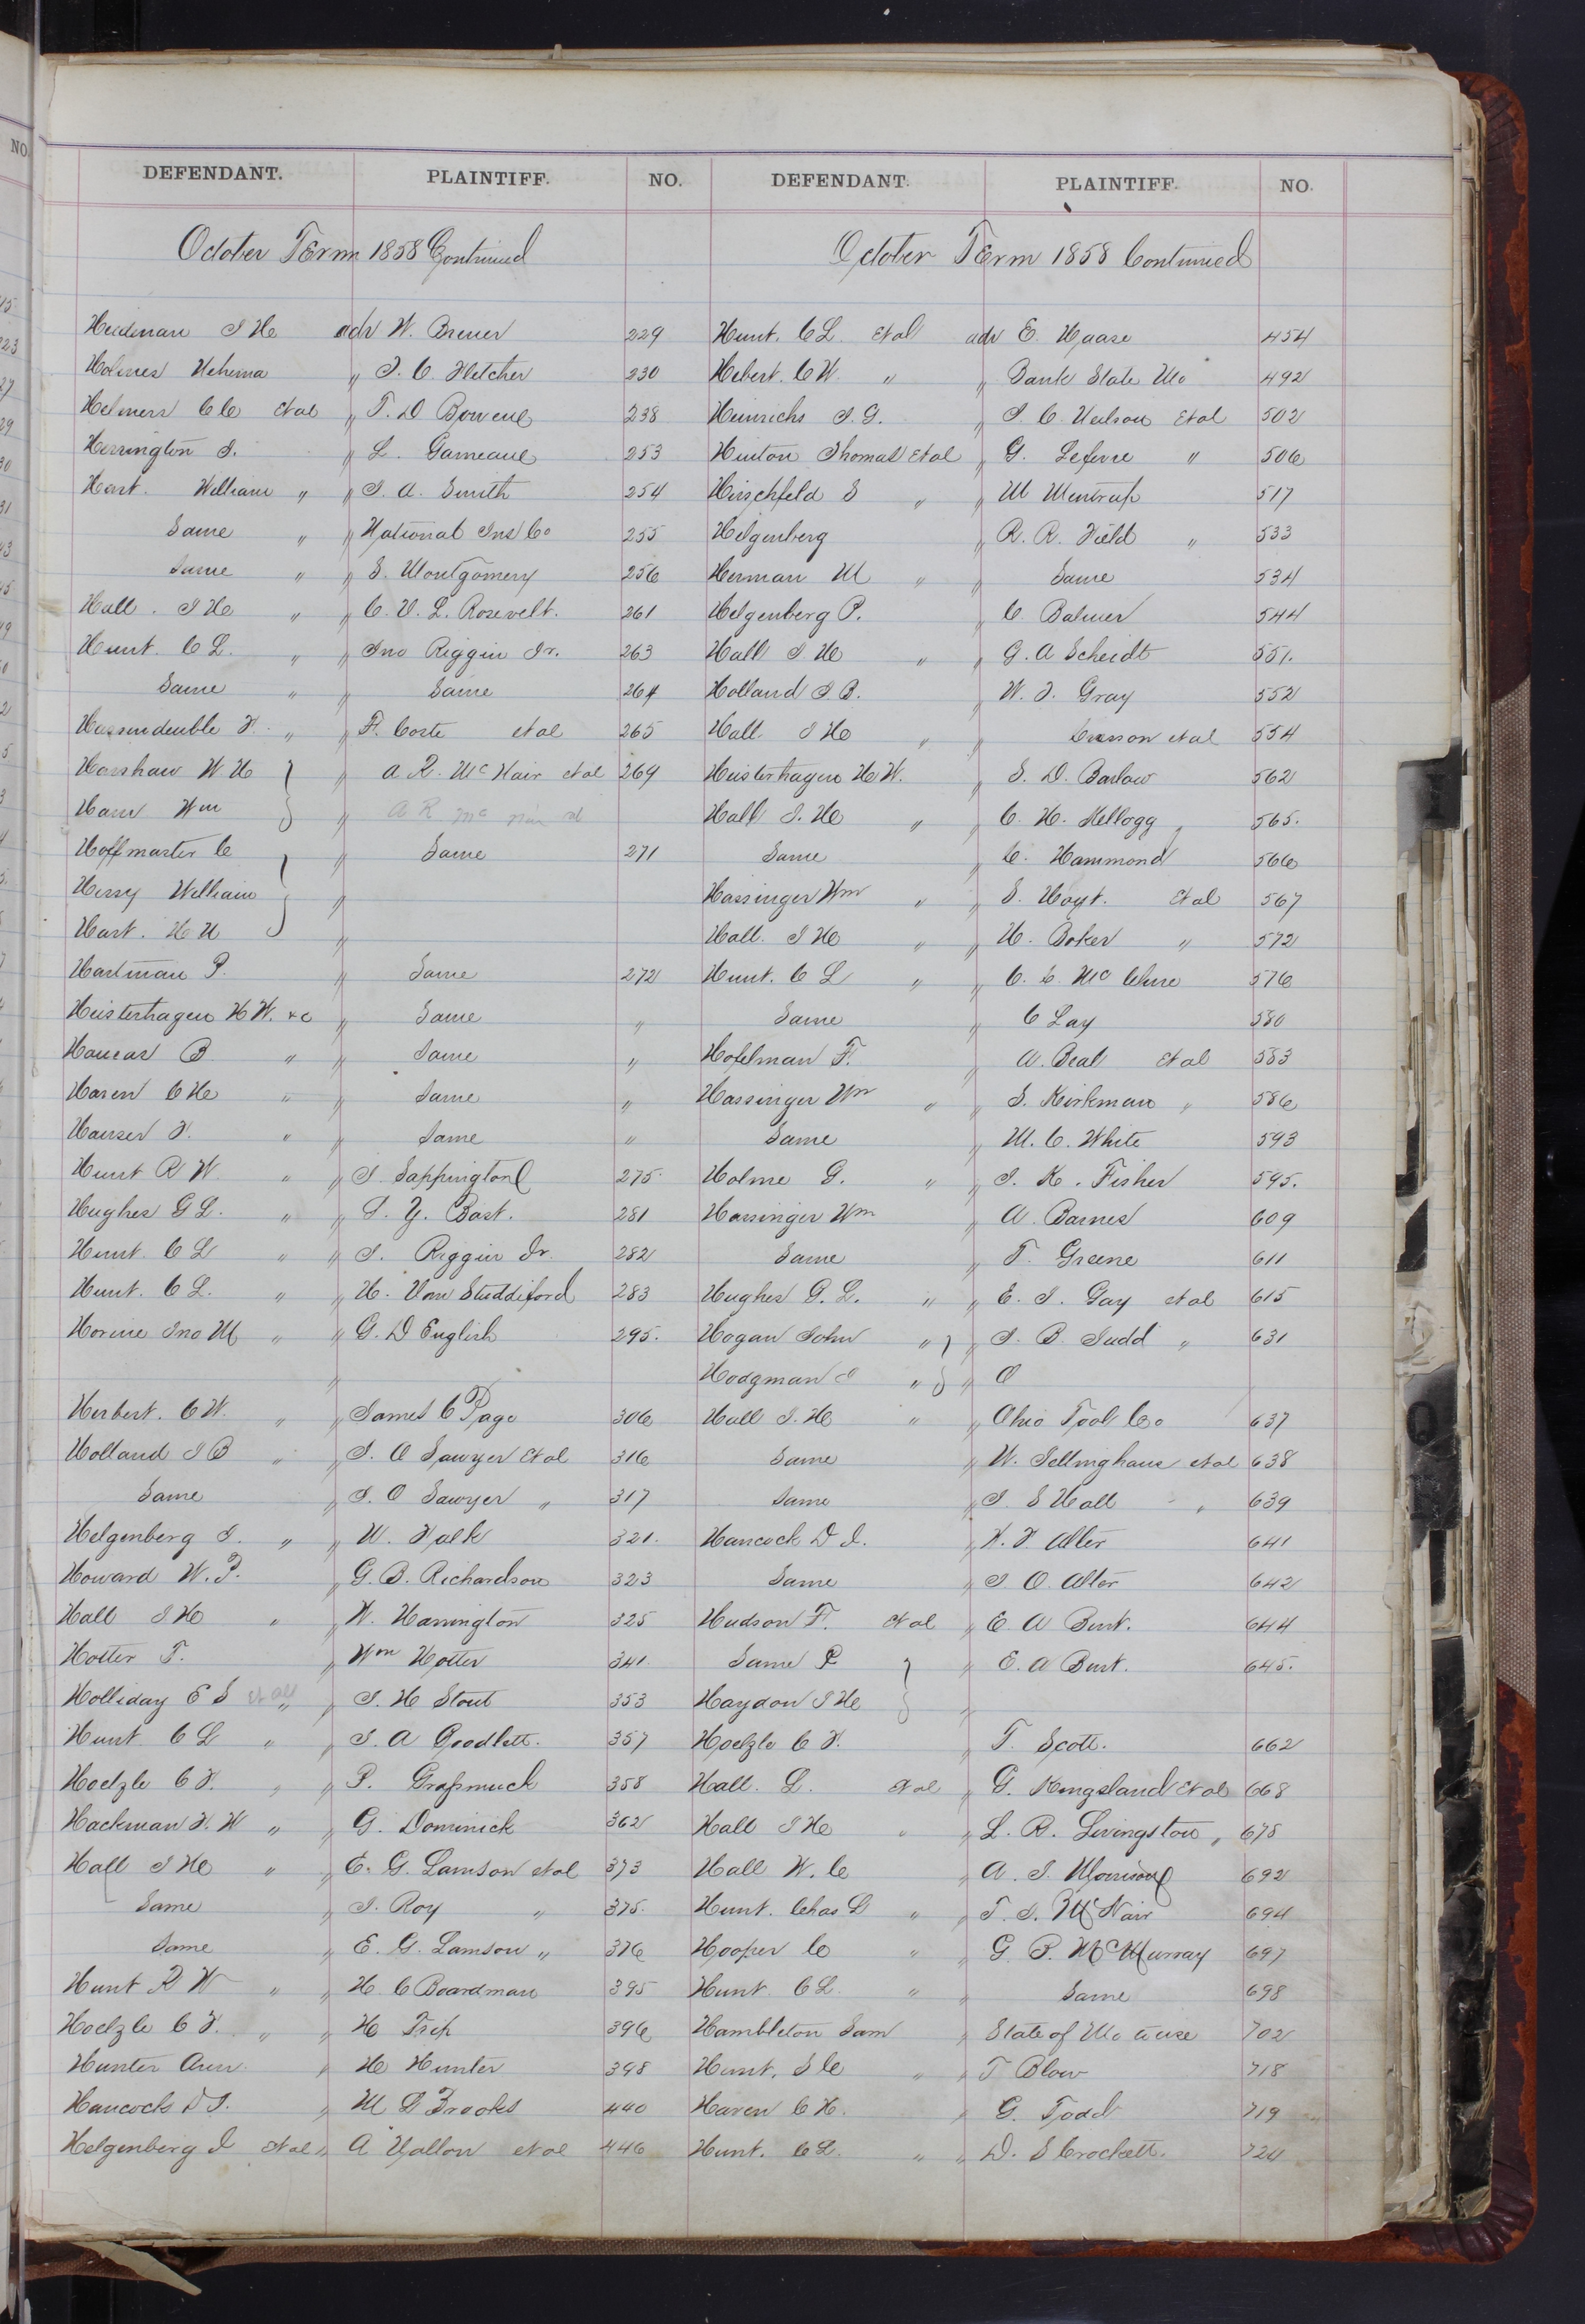 DEFENDANT. PLAINTIFF. NO. DEFENDANT. PLAINTIFF. NO.
October Term 1858 Continued
Heidman J H adv W. Brewer 229
Holmes Nehemia " J. C. Fletcher 230
Helmers C C et al " T. D Bowene 238
Herrington J. " L. Gameaue 253
Hart. William " " J. A. Smith 254
Same " " National Ins Co 255
Same " " S. Montgomery 256
Hall. J H " " C. V. L. Rosevelt. 261
Hunt. C L. " " Jno Riggin Jr. 263
Same " " Same 264
Hassendeuble F. " " F. Coste et al 265
Harshaw W H } " A R. McNair et al 269
Ham Wm } " A R Mc Nair al
Hoffmaster C } " Same 271
Henry William } "
Hart. H N } "
Hartman P. " Same 272
Heisterhagen H W. &c " Same "
Hancas B. " " Same "
Haren C H " " Same "
Hauser F. " " Same "
Hunt R W. " " J. Sappington 275
Hughes G L. " " S. Y. Bast. 281
Hunt C L " " J. Riggin Jr. 282
Hunt. C L. " " U. Von Studdiford 283
Horine Jno M " " G. D English 295.
"
Herbert. C W. " " James C Page 306
Holland J B " " J. O Sawyer et al 316
Same " J. O Sawyer " 317
Helgenberg J. " " W. Falk 321.
Howard W. P. " G. B. Richardson 323
Hall J H " " W. Harrington 325
Hotter T. " Wm Hotter 341.
Holliday E S et al " " J. H Stout 353
Hunt C L " " J. A Goodlett. 357
Hoelzle C F. " " P. Grafsmuck 358
Hackman F. W " " G. Dominick 362
Hall J H " " E. G. Lamson et al 373
Same " J. Roy " 375.
Same " E. G. Lamson " 376
Hunt R W " " H. C Boardman 395
Hoelzle C F. " " H Trip 396
Hunter Ann " H Hunter 398
Hancock D J. " M L Brooks 440
Helgenberg J et al " A Yallow et al 446
October Term 1858 Continued
Hunt. C L. et al adv E. Haase 454
Hebert. C W. " " Bank State Mo 492
Heinrichs J. G. " J. C. Neilson et al 502
Hinton Thomas et al " G. Lefevre " 506
Hirschfeld S " " M Mentrup 517
Helgenberg " R. R. Field " 533
Herman M " " Same 534
Helgenberg P. " C. Balmer 544
Hall J. H " " G. A Scheidt 551.
Holland J. B. " W. J. Gray 552
Hall J H " " Casson et al 554
Heisterhagen H W. " S. D. Barlow 562
Hall J. H " " C. H. Kellogg 565.
Same " C. Hammond 566
Hassinger Wm " " S. Hoyt. et al 567
Hall. J H " " H. Boker " 572
Hunt. C L " " C. C. McClure 576
Same " C Lay 580
Hofelman F. " A. Beal et al 583
Hassinger Wm " " S. Kirkman " 586
Same " M. C. White 593
Holme G. " " J. K. Fisher 595.
Hassinger Wm " A. Barnes 609
Same " T. Greene 611
Hughes G. L. " " E. J. Gay et al 615
Hogan John " } " J. B. Judd " 631
Hodgman J " } " O
Hall J. H " " Ohio Tool Co 637
Same " W. Sellinghaus et al 638
Same " J S Hall " 639
Hancock D J. " W. F. Alter 641
Same " J O. Alter 642
Hudson F. et al " E A Burt. 644
Same P } " E. A Burt. 645.
Haydon J H } "
Hoelzle C F. " T. Scott. 662
Hall. L. et al " G. Kingsland et al 668
Hall J H " " L. R. Livingston " 678
Hall W. C " A. J. Morrison 692
Hunt. Chas L " " T. J. McNair 694
Hooper C " " G. P. McMurray 697
Hunt C L. " " Same 698
Hambleton Sam " State of Mo to use 702
Hunt. S C " " T Blow 718
Haren C H. " G. Todd 719
Hunt. C L. " " D. S Crockett. 724